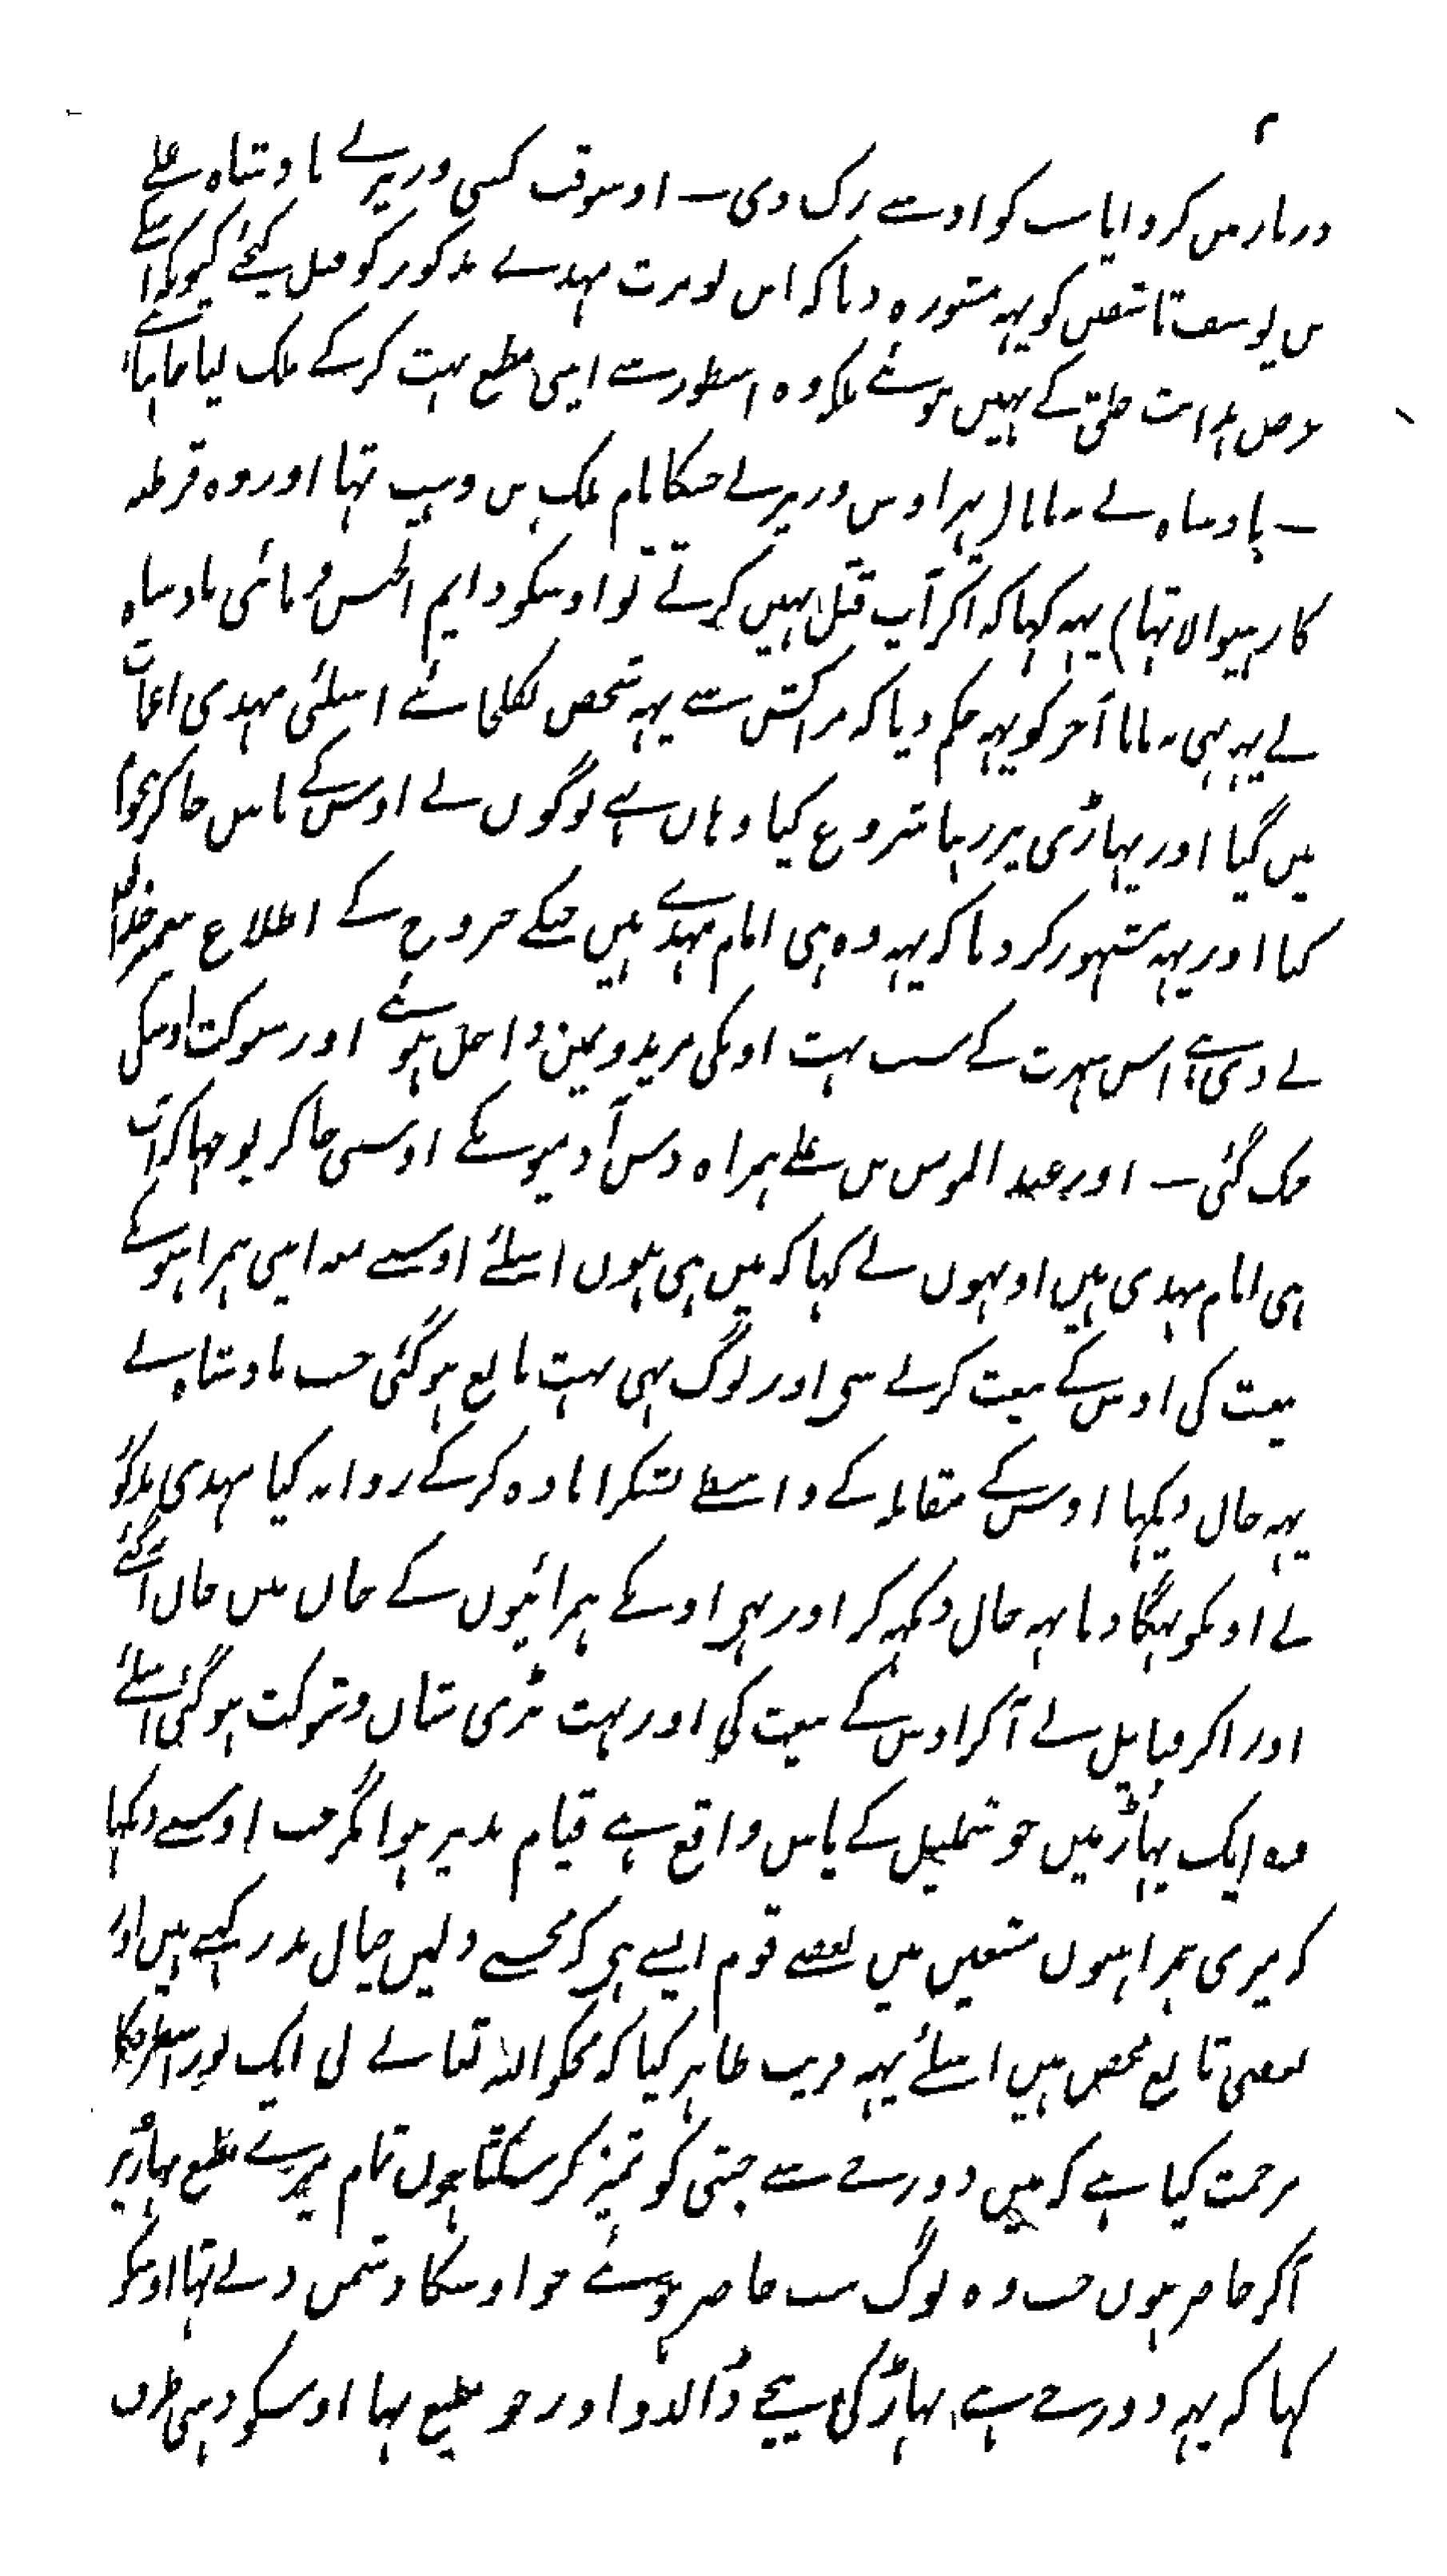 ۲
دربار میں کروایا سب کو اوسے زک دی ـ اوسوقت کسی وزیر نے بادشاہ علے
بن یوسف تاشفین کو یہہ مشورہ دیا کہ اس تومرت مہدے مذکور کو قتل کیجئے کیونکہ اسکے
غرض ہدایت خلق کے نہیں ہوئے بلکہ وہ اسطور سے اپنی مطیع بہت کرکے ملک لیا چاہتا ہے
ـ بادشاہ نے نہ مانا ( پہر اوس وزیر نے جسکا نام ملک بن وہیب تہا اور وہ قرطبہ
کا رہنیوالا تہا ) یہہ کہا کہ اگر آپ قتل نہیں کرتے تو اوسکو دایم الحبس فرمائی بادشاہ
نے یہہ بہی نہ مانا آخر کو یہہ حکم دیا کہ مراکش سے یہہ شخص نکلجائے اسلئی مہدی اغمات
میں گیا اور پہاڑی پر رہنا شروع کیا وہاں بہے لوگوں نے اوس کے پاس جاکر ہجوم
کیا اور یہہ مشہور کر دیا کہ یہہ وہ ہی امام مہدے ہیں جنکے خروج کے اطلاع پیغمبر خدا
نے دی ہے اس شہرت کے سبب بہت اونکی مریدو نمین داخل ہوئے اور شوکت اوسکی
چمک گئی ـ اور عبد المومن بن علے ہمراہ دس آدمیو نکے اوسی جاکر پوچہا کہ آپ
ہی امام مہدی ہیں اونہوں نے کہا کہ میں ہی ہوں اسلئے اوسے معہ اپنی ہمراہیو نکے
بیعت کی اوس کے بیعت کرنے سی اور لوگ بہی بہت تابع ہو گئی جب بادشاہ نے
یہہ حال دیکہا اوس کے مقابلہ کے واسطے لشکر امادہ کرکے روانہ کیا مہدی مذکور
نے اونکو بہگا دیا یہہ حال دیکہہ کر اور بہی اوسکے ہمرائیوں کے جان میں جان آگئے
اور اکثر قبایل نے آکر اوس کے بیعت کی اور بہت بڑی شان و شوکت ہو گئی اسلئے
وہ ایک پہاڑ میں جو تنملیل کے پاس واقع ہے قیام پذیر ہوا مگر جب اوسے دیکہا
کہ میری ہمراہیوں متبعین میں بعضے قوم ایسے ہی کہ مجہسے دلیں خیال بد رکہتے ہیں اور
بعضی تابع محض ہیں اسلئے یہہ فریب ظاہر کیا کہ مجکو اللہ تعالے نی ایک نور اسطرحکا
مرحمت کیا ہے کہ میں دوزخے سے جنتی کو تمیز کر سکتا ہوں تمام میرے مطیع پہاڑ پر
آکر حاضر ہوں جب وہ لوگ سب حاضر ہوئے جو اوسکا دشمن دلے تہا اوسکو
کہا کہ یہہ دوزخے ہے پہاڑ کی نیچے ڈالدو اور جو مطیع تہا اوسکو دہنی طرف